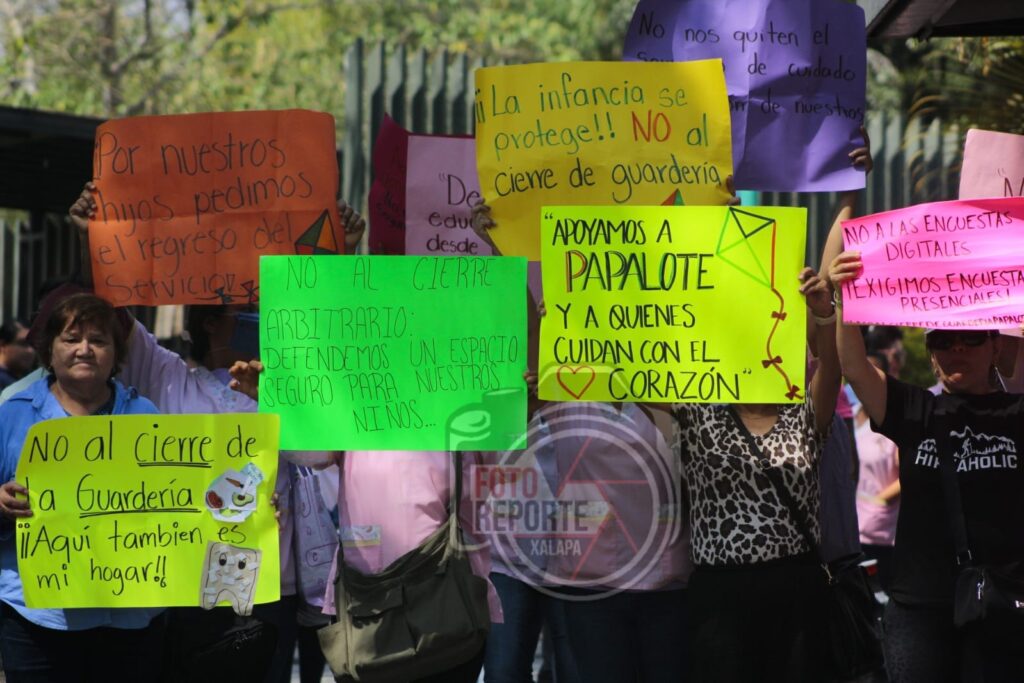 No nos quiten el
de cuidado
de nuestros
¡¡La infancia se
protege!! NO al
cierre de guardería
Por nuestros
hijos pedimos
el regreso del
Servicio
NO AL CIERRE
ARBITRARIO:
DEFENDEMOS UN ESPACIO
SEGURO PARA NUESTROS
NIÑOS...
"APOYAMOS A
PAPALOTE
Y A QUIENES
CUIDAN CON EL
CORAZÓN"
NO A LAS ENCUESTAS
DIGITALES
¡EXIGIMOS ENCUESTA
PRESENCIALES!
NO al cierre de
la Guardería
¡¡Aquí tambien es
mi hogar!!
FOTO
REPORTE
XALAPA